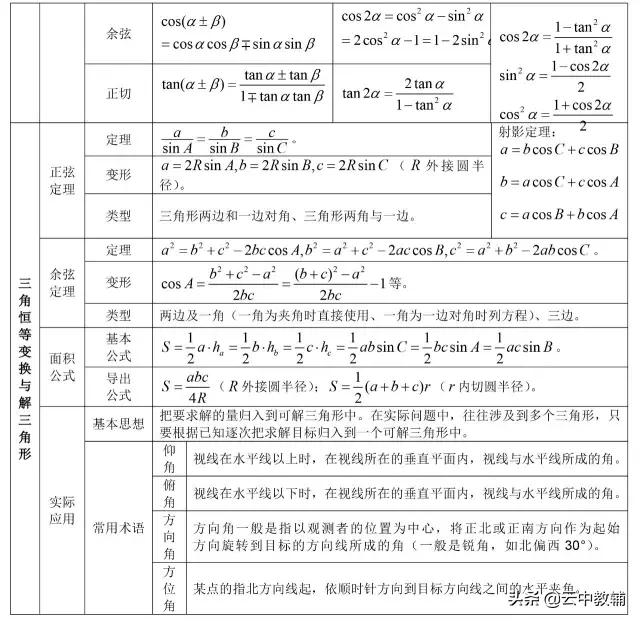 余弦
cos(α±β)
=cosαcosβ∓sinαsinβ
cos2α=cos²α−sin²α
=2cos²α−1=1−2sin²α
cos2α=(1−tan²α)/(1+tan²α)
sin²α=(1−cos2α)/2
cos²α=(1+cos2α)/2
正切
tan(α±β)=(tanα±tanβ)/(1∓tanαtanβ)
tan2α=2tanα/(1−tan²α)
三角恒等变换与解三角形
正弦定理
定理
a/sinA=b/sinB=c/sinC。
射影定理:
a=bcosC+ccosB
b=acosC+ccosA
c=acosB+bcosA
变形
a=2RsinA,b=2RsinB,c=2RsinC(R外接圆半
径)。
类型
三角形两边和一边对角、三角形两角与一边。
余弦定理
定理
a²=b²+c²−2bccosA,b²=a²+c²−2accosB,c²=a²+b²−2abcosC。
变形
cosA=(b²+c²−a²)/2bc=((b+c)²−a²)/2bc−1等。
类型
两边及一角(一角为夹角时直接使用、一角为一边对角时列方程)、三边。
面积公式
基本公式
S=1/2a·hₐ=1/2b·h_b=1/2c·h_c=1/2absinC=1/2bcsinA=1/2acsinB。
导出公式
S=abc/4R(R外接圆半径);S=1/2(a+b+c)r(r内切圆半径)。
实际应用
基本思想
把要求解的量归入到可解三角形中。在实际问题中,往往涉及到多个三角形,只
要根据已知逐次把求解目标归入到一个可解三角形中。
常用术语
仰角
视线在水平线以上时,在视线所在的垂直平面内,视线与水平线所成的角。
俯角
视线在水平线以下时,在视线所在的垂直平面内,视线与水平线所成的角。
方向角
方向角一般是指以观测者的位置为中心,将正北或正南方向作为起始
方向旋转到目标的方向线所成的角(一般是锐角,如北偏西30°)。
方位角
某点的指北方向线起,依顺时针方向到目标方向线之间的水平夹角。
头条@云中教辅